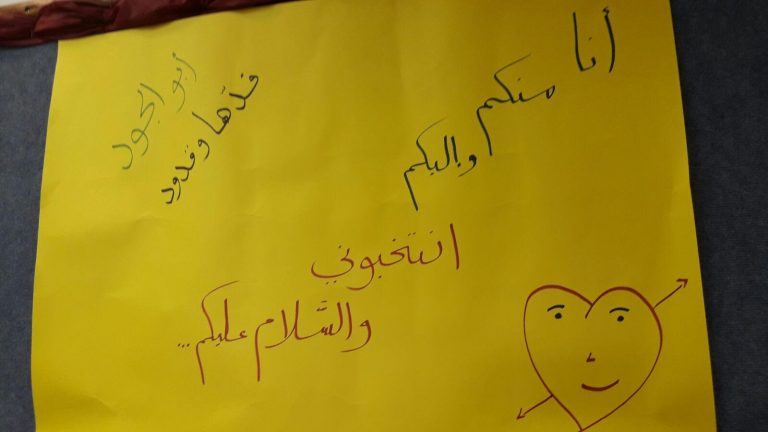 أنا منكم
وإليكم
أبو الجود
قدّها وقدود
انتخبوني
والسّلام عليكم...